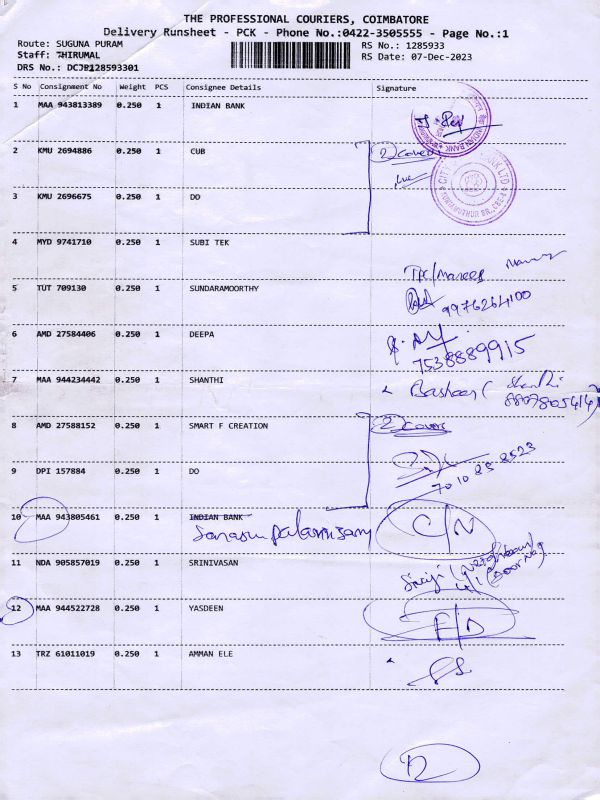 THE PROFESSIONAL COURIERS, COIMBATORE
Delivery Runsheet - PCK - Phone No.:0422-3505555 - Page No.:1
Route: SUGUNA PURAM
RS No.: 1285933
Staff: THIRUMAL
RS Date: 07-Dec-2023
DRS No.: DCJB128593301
S No Consignment No Weight PCS Consignee Details Signature
1 MAA 943813389 0.250 1 INDIAN BANK
2 KMU 2694886 0.250 1 CUB 2 Cover
3 KMU 2696675 0.250 1 DO
4 MYD 9741710 0.250 1 SUBI TEK
5 TUT 709130 0.250 1 SUNDARAMOORTHY
9976264100
6 AMD 27584406 0.250 1 DEEPA
7538889915
7 MAA 944234442 0.250 1 SHANTHI Basheer ( Shanthi
8807805414)
8 AMD 27588152 0.250 1 SMART F CREATION 2 Cover
9 DPI 157884 0.250 1 DO
70 10 85 8523
10 MAA 943805461 0.250 1 INDIAN BANK C/N
11 NDA 905857019 0.250 1 SRINIVASAN
12 MAA 944522728 0.250 1 YASDEEN F/D
13 TRZ 61011019 0.250 1 AMMAN ELE
12